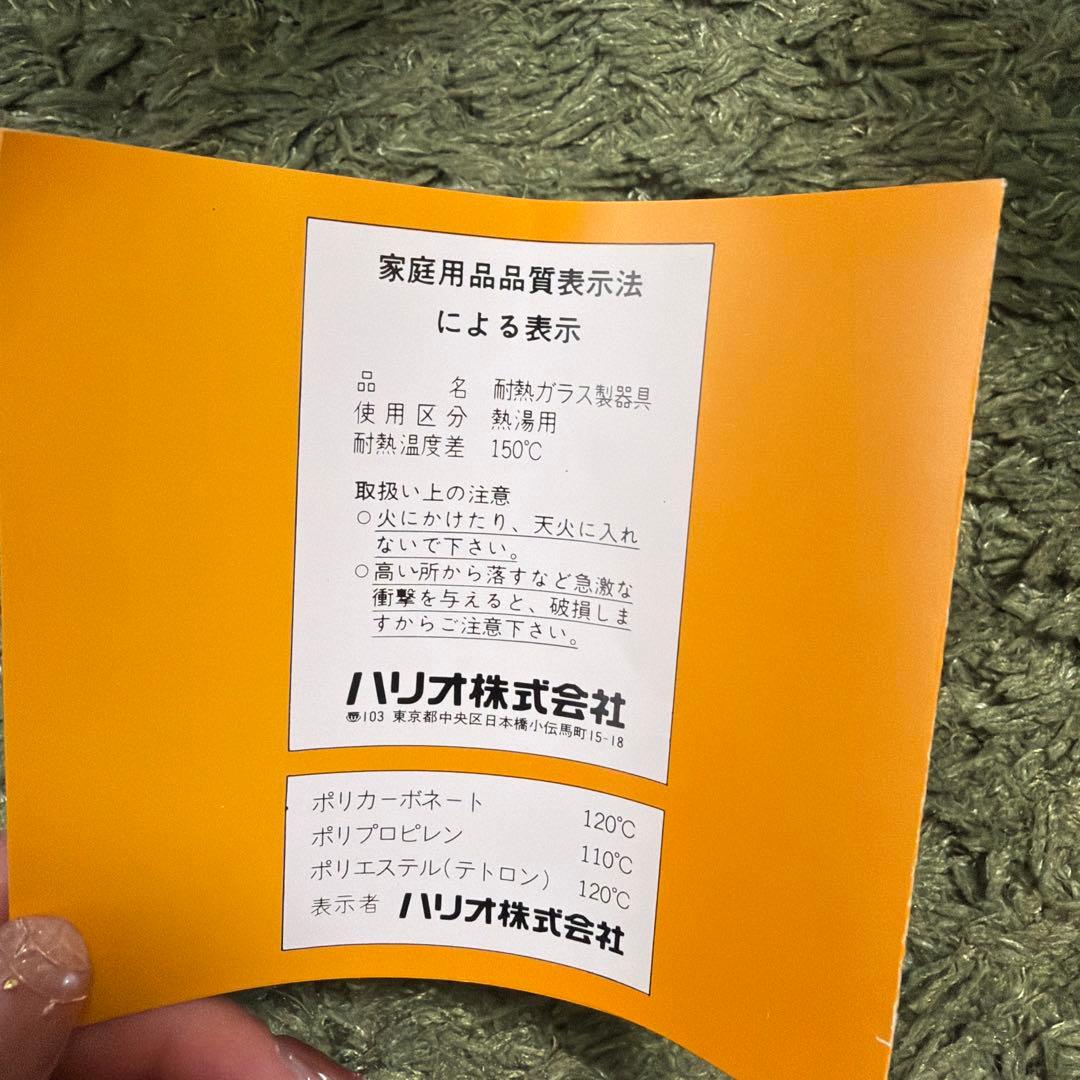 家庭用品品質表示法
による表示
品名 耐熱ガラス製器具
使用区分 熱湯用
耐熱温度差 150℃
取扱い上の注意
○火にかけたり、天火に入れ
ないで下さい。
○高い所から落すなど急激な
衝撃を与えると、破損しま
すからご注意下さい。
ハリオ株式会社
〠103 東京都中央区日本橋小伝馬町15-18
ポリカーボネート 120℃
ポリプロピレン 110℃
ポリエステル(テトロン) 120℃
表示者 ハリオ株式会社